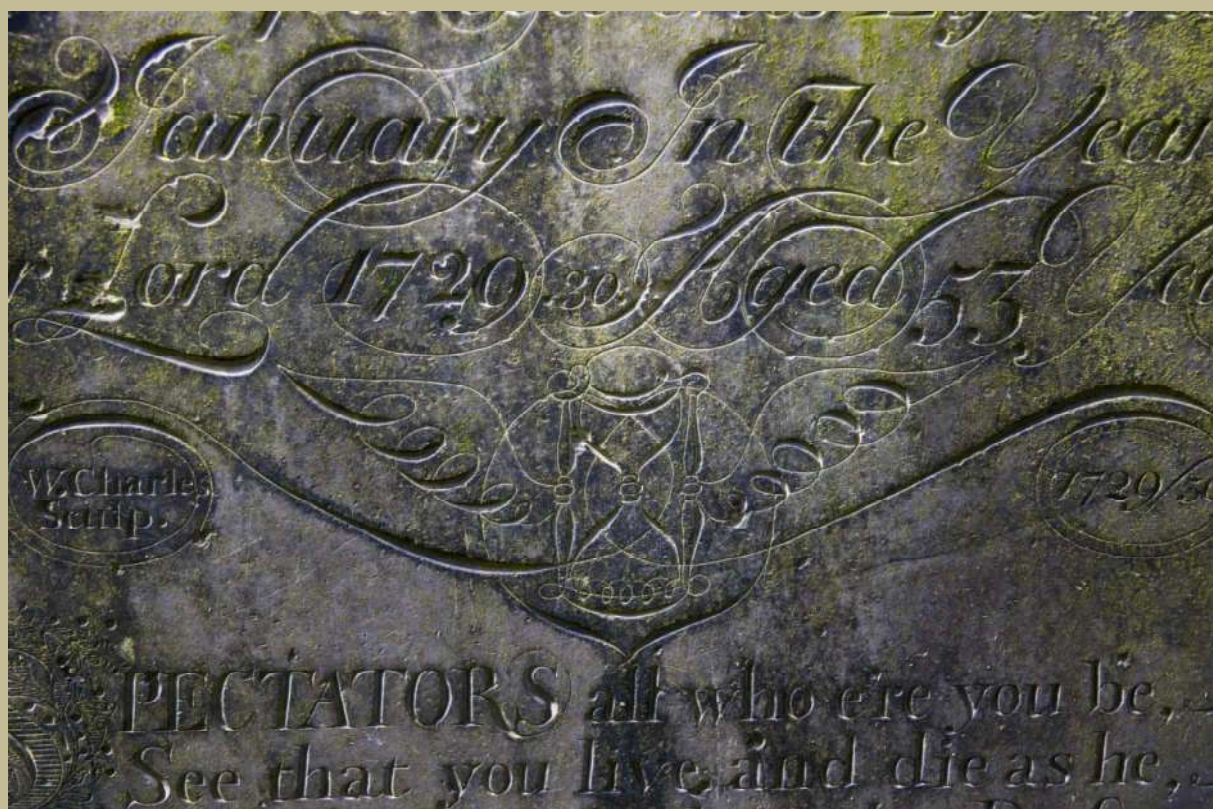 January In the Year
r Lord 1729 .30. Aged 53 Yea
W. Charles
Sculp.
1729/30
SPECTATORS all who e're you be,
See that you live and die as he,